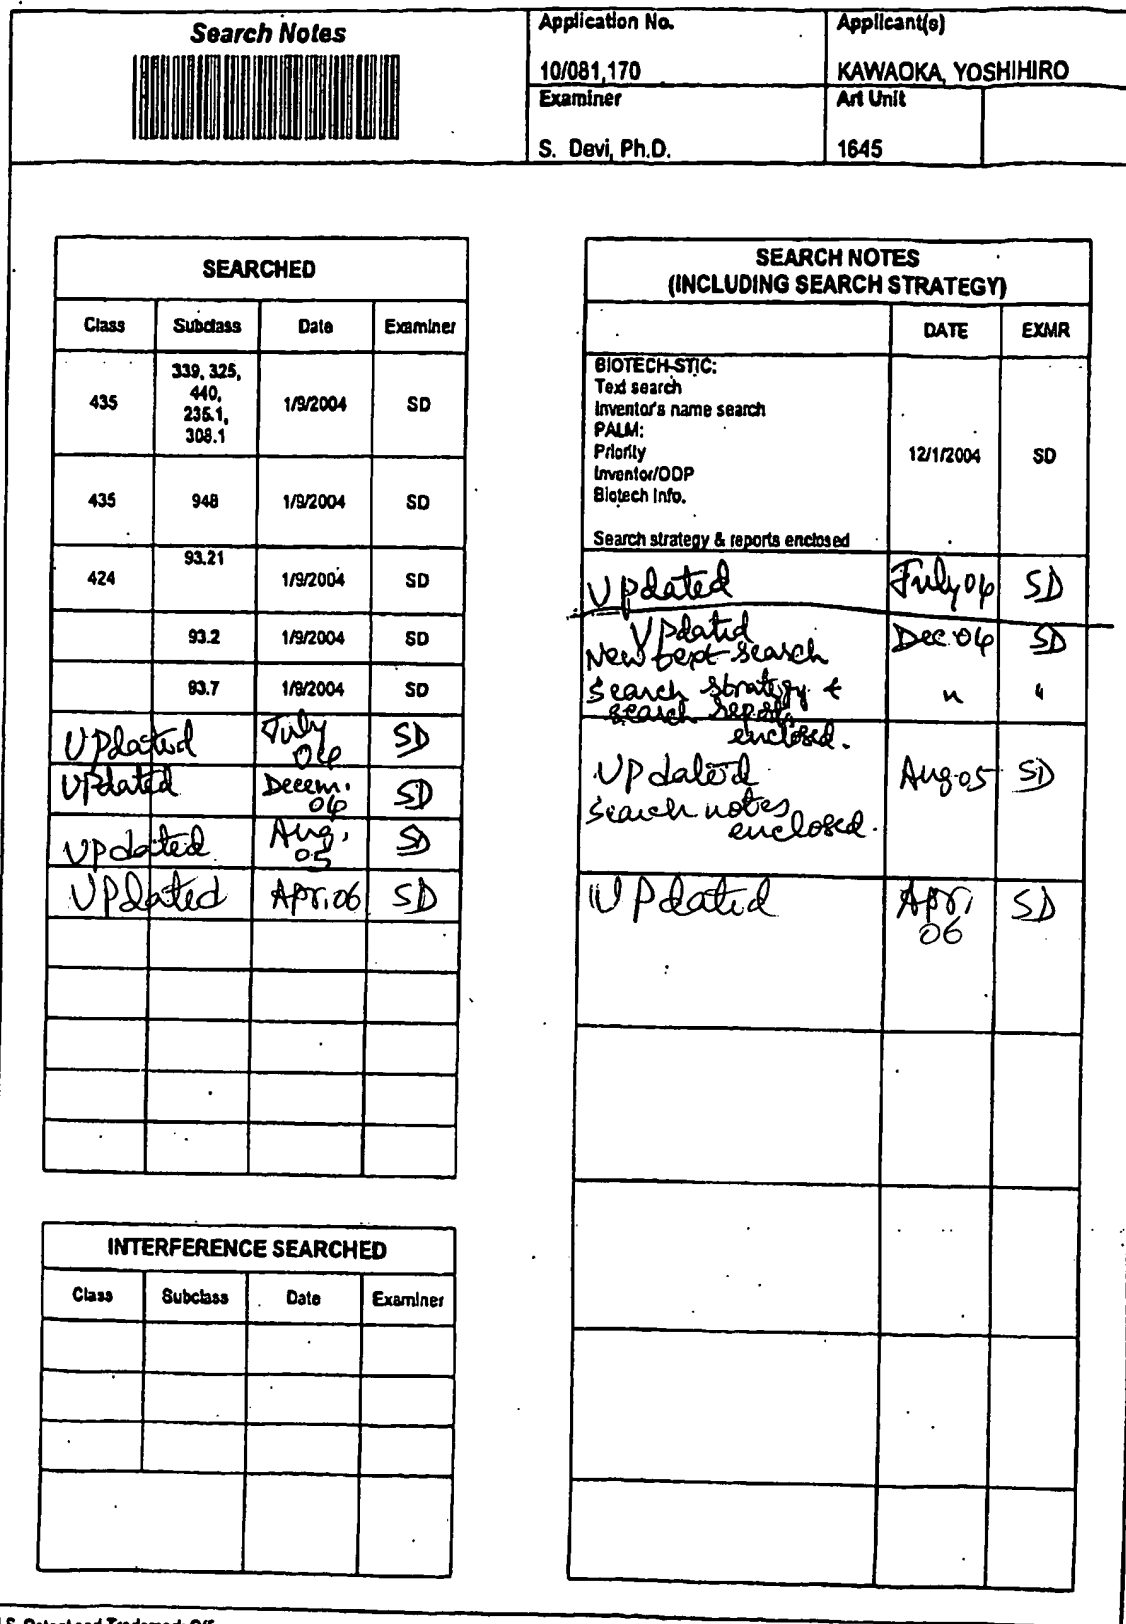 Search Notes
Application No.
Applicant(s)
10/081,170
KAWAOKA, YOSHIHIRO
Examiner
Art Unit
S. Devi, Ph.D.
1645
SEARCHED
Class Subclass Date Examiner
435 339, 325, 440, 235.1, 308.1 1/9/2004 SD
435 948 1/9/2004 SD
424 93.21 1/9/2004 SD
93.2 1/9/2004 SD
93.7 1/9/2004 SD
Updated July 04 SD
Updated Decem. 04 SD
Updated Aug. 05 SD
Updated Apr. 06 SD
INTERFERENCE SEARCHED
Class Subclass Date Examiner
SEARCH NOTES
(INCLUDING SEARCH STRATEGY)
DATE EXMR
BIOTECH-STIC:
Text search
Inventor's name search
PALM:
Priority
Inventor/ODP
Biotech Info.
12/1/2004 SD
Search strategy & reports enclosed
Updated July 04 SD
Updated Dec. 04 SD
New text search
search strategy & " "
search reports
enclosed.
Updated Aug. 05 SD
search notes
enclosed.
Updated Apr. 06 SD